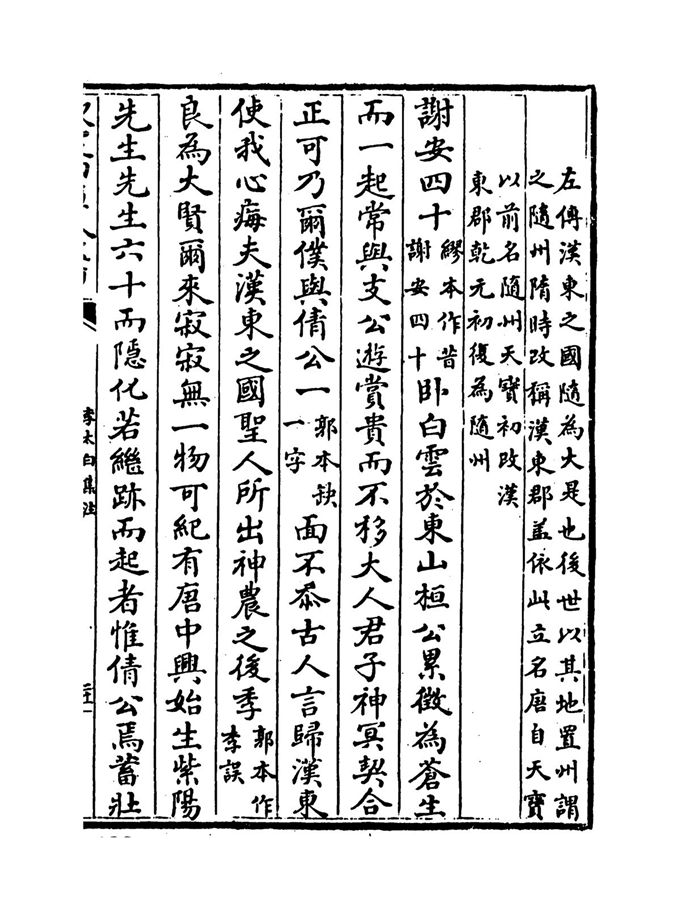 左傳漢東之國隨為大是也後世以其地置州謂
之隨州隋時改稱漢東郡蓋依此立名唐自天寶
以前名隨州天寶初改漢
東郡乾元初復為隨州
謝安四十繆本作昔謝安四十卧白雲於東山桓公累徵為蒼生
而一起常與支公遊賞貴而不移大人君子神冥契合
正可乃爾僕與倩公一郭本缺一字面不忝古人言歸漢東
使我心痗夫漢東之國聖人所出神農之後季郭本作李誤
良為大賢爾來寂寂無一物可紀有唐中興始生紫陽
先生先生六十而隱化若繼跡而起者惟倩公焉蓄壯
李太白集注